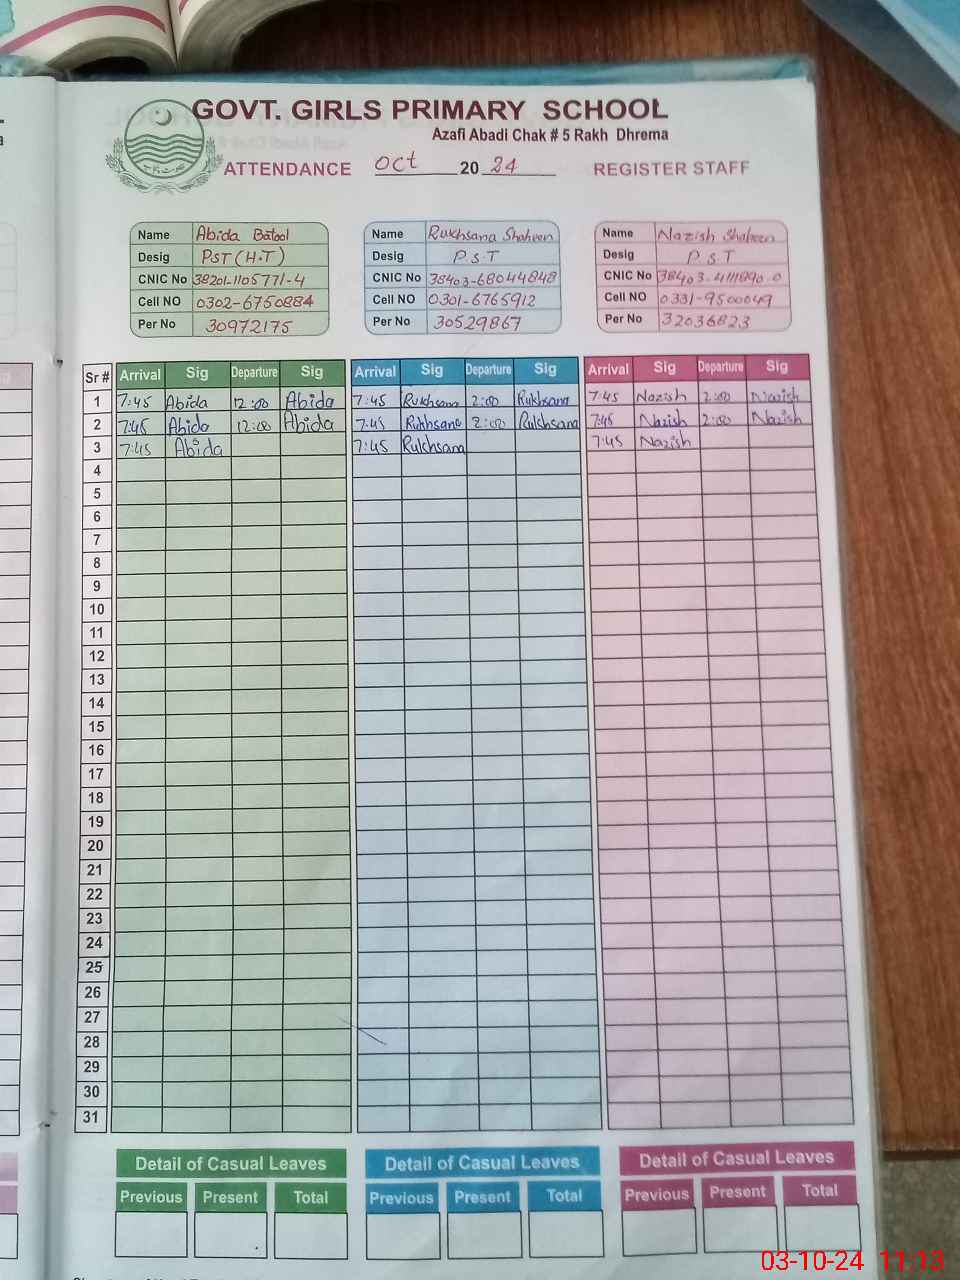 GOVT. GIRLS PRIMARY SCHOOL
Azafi Abadi Chak # 5 Rakh Dhrema
ATTENDANCE Oct 2024 REGISTER STAFF
Name Abida Batool Name Rukhsana Shaheen Name Nazish Shaheen
Desig PST (H.T) Desig P.S.T Desig P.S.T
CNIC No 38201-1105771-4 CNIC No 38403-6804484-8 CNIC No 38403-4111890-0
Cell NO 0302-6750884 Cell NO 0301-6765912 Cell NO 0331-9500049
Per No 30972175 Per No 30529867 Per No 32036823
Sr # Arrival Sig Departure Sig Arrival Sig Departure Sig Arrival Sig Departure Sig
1 7:45 Abida 12:00 Abida 7:45 Rukhsana 2:00 Rukhsana 7:45 Nazish 2:00 Nazish
2 7:45 Abida 12:00 Abida 7:45 Rukhsana 2:00 Rukhsana 7:45 Nazish 2:00 Nazish
3 7:45 Abida 7:45 Rukhsana 7:45 Nazish
4
5
6
7
8
9
10
11
12
13
14
15
16
17
18
19
20
21
22
23
24
25
26
27
28
29
30
31
Detail of Casual Leaves Detail of Casual Leaves Detail of Casual Leaves
Previous Present Total Previous Present Total Previous Present Total
03-10-24 11:13